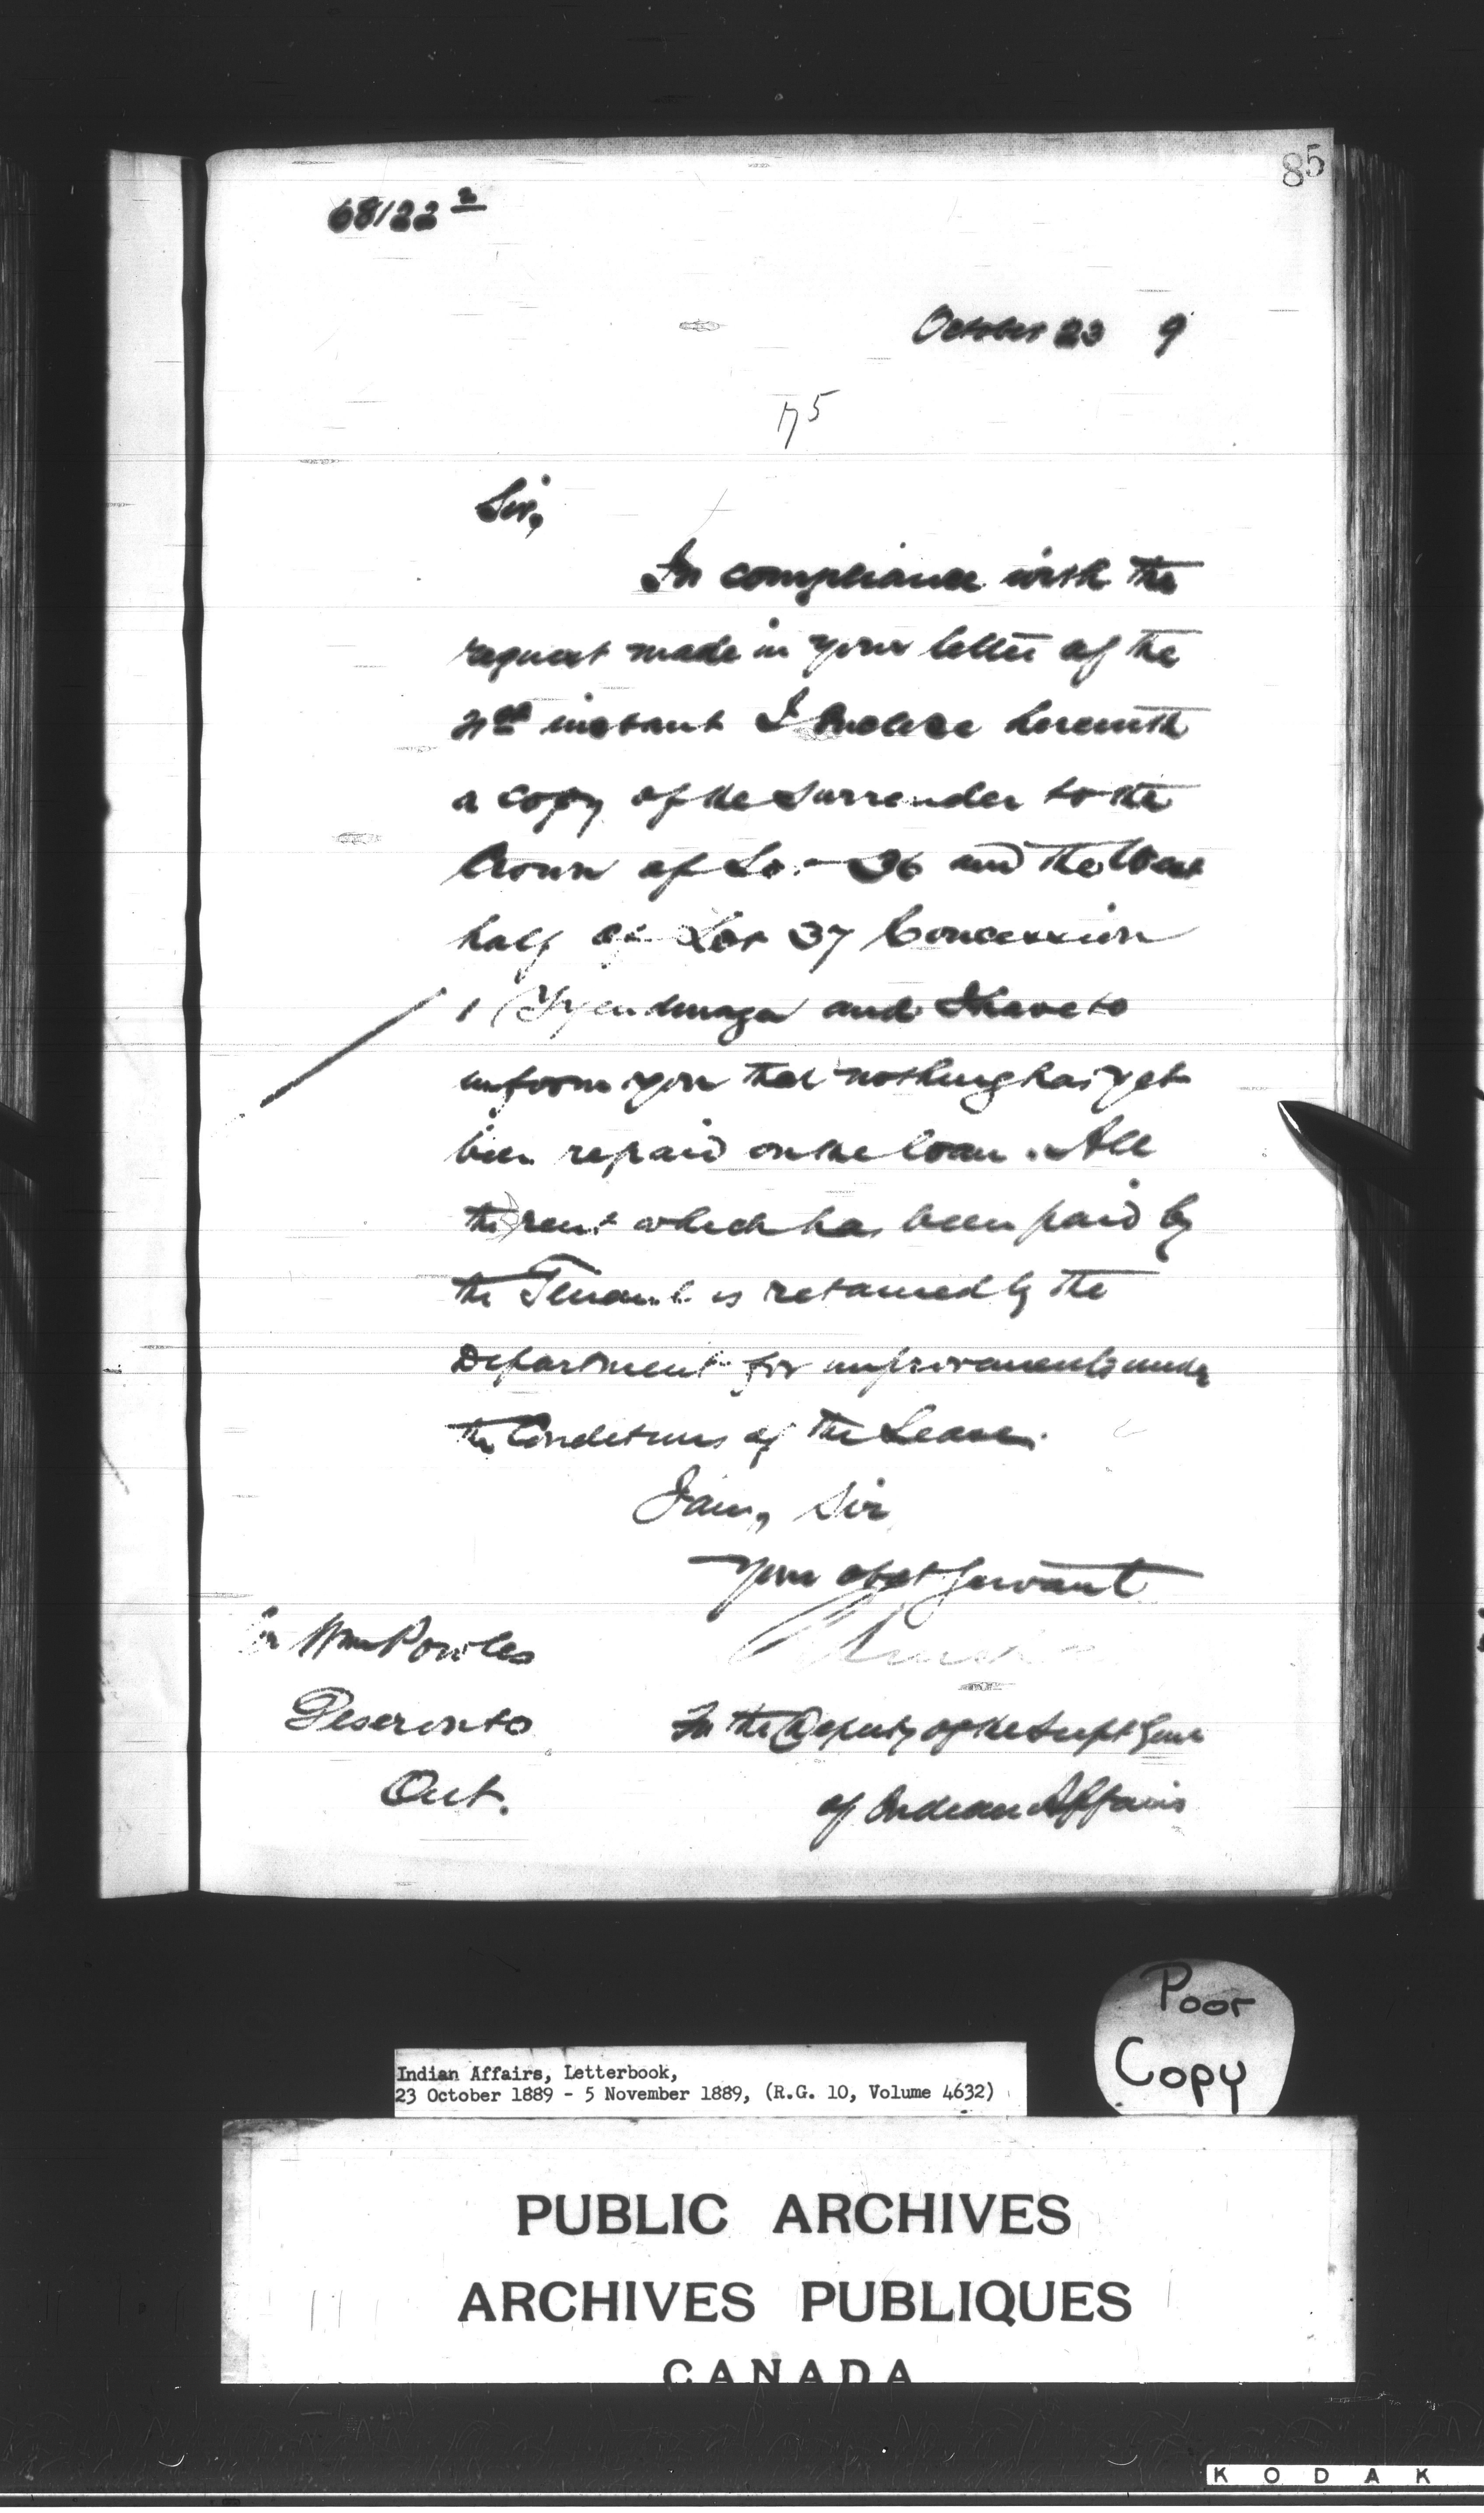 85
68122 2
October 23 9
175
Sir,
In compliance with the
request made in your letter of the
instant I enclose herewith
a copy of the Surrender to the
Crown of Lot 36 and the West
half of Lot 37 Concession
1 Tyendinaga and I have to
inform you that nothing has yet
been repaid on the loan. All
the rent which has been paid by
the Tenant is retained by the
Department for improvements under
the Conditions of the Lease.
I am, Sir
Your obdt Servant
Wm Powles
Deseronto
Ont.
for the Deputy of the Supt Genl
of Indian Affairs
Poor
Copy
Indian Affairs, Letterbook,
23 October 1889 - 5 November 1889, (R.G. 10, Volume 4632)
PUBLIC ARCHIVES
ARCHIVES PUBLIQUES
CANADA
KODAK